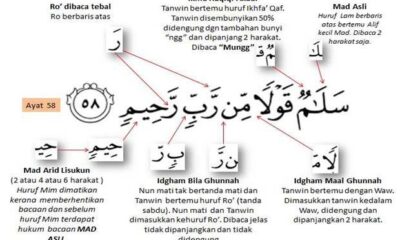 Ro' dibaca tebal
Ro berbaris atas
Tanwin bertemu huruf ikhfa' Qaf.
Tanwin disembunyikan 50%
didengung dgn tambahan bunyi
"ngg" dan dipanjang 2 harakat.
Dibaca "Mungg"
Mad Asli
Huruf Lam berbaris
atas bertemu Alif
kecil Mad. Dibaca 2
harakat saja.
رَ
مٌ قَ
لَٰ
Ayat 58
سَلَٰمٌ قَوْلًا مِّن رَّبٍّ رَّحِيمٍ ٥٨
حِي
حِيمٍ
بٍّ رَّ
مِّن رَّ
لًا مِّ
Mad Arid Lisukun
(2 atau 4 atau 6 harakat )
Huruf Mim dimatikan
kerana memberhentikan
bacaan dan sebelum
huruf Mim terdapat
hukum bacaan MAD
ASLI
Idgham Bila Ghunnah
Nun mati tak bertanda mati dan
Tanwin bertemu huruf Ro' (tanda
sabdu). Nun mati dan Tanwin
dimasukkan kehuruf Ro'. Dibaca jelas
tidak dipanjangkan dan tidak
didengung.
Idgham Maal Ghunnah
Tanwin bertemu dengan Waw.
Dimasukkan tanwin kedalam
Waw, didengung dan
dipanjangkan 2 harakat.